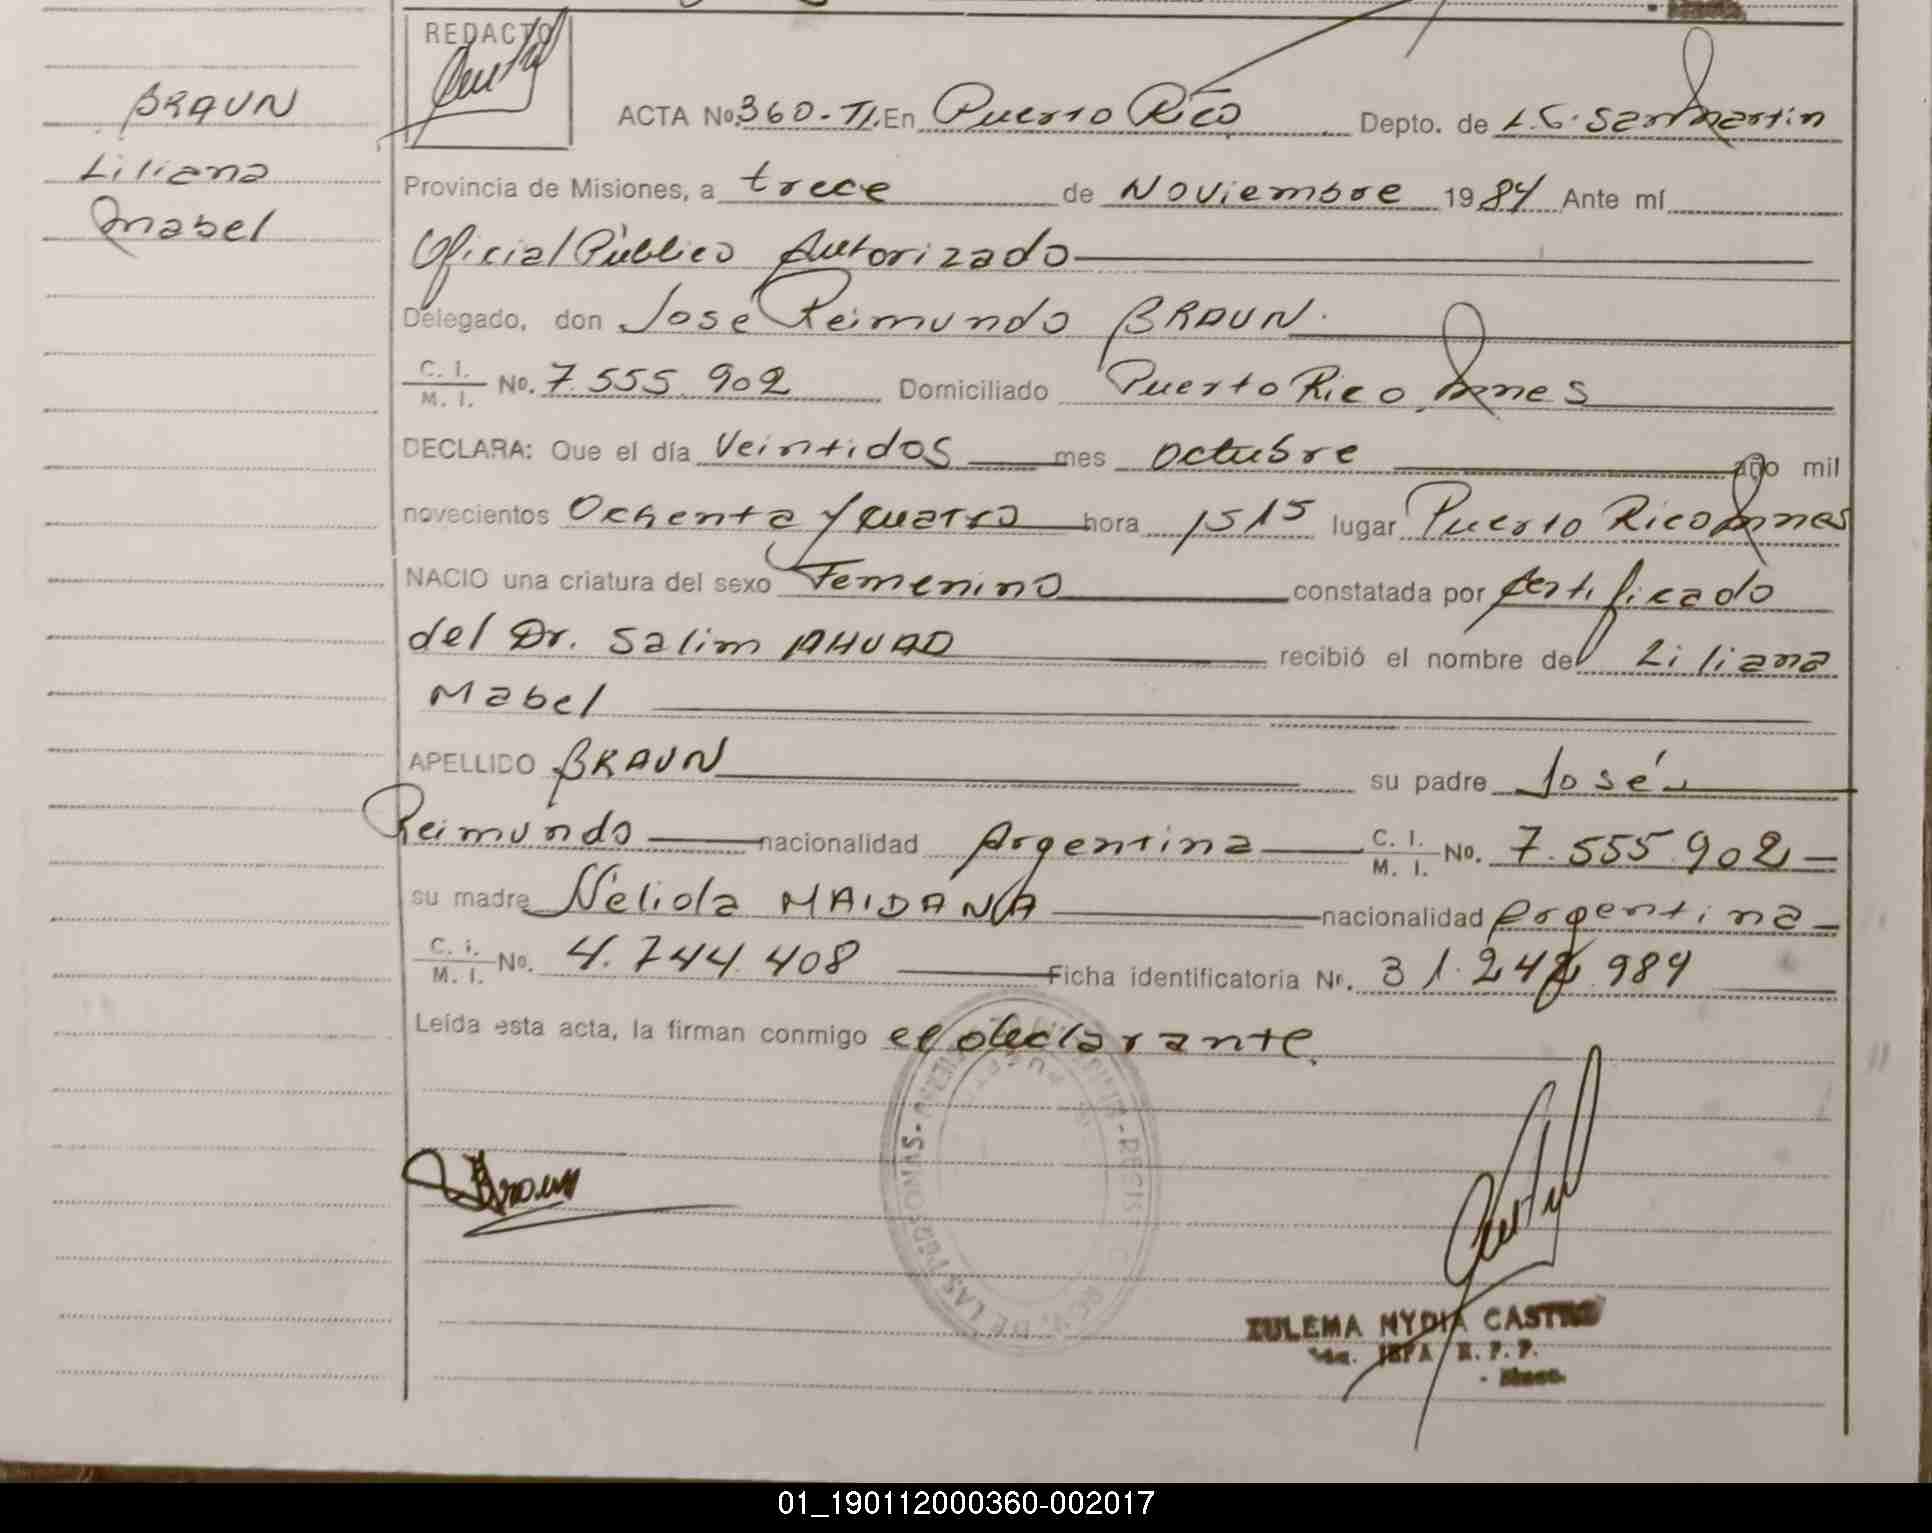 REDACTO
BRAUN
Liliana
Mabel
ACTA No. 360-TI. En Puerto Rico Depto. de L.G. San Martin
Provincia de Misiones, a trece de Noviembre 1984 Ante mí
Oficial Público Autorizado
Delegado, don José Reimundo BRAUN.
C. I. / M. I. No. 7.555.902 Domiciliado Puerto Rico, Mnes
DECLARA: Que el día Veintidos mes octubre año mil
novecientos Ochenta y cuatro hora 1515 lugar Puerto Rico Mnes
NACIO una criatura del sexo Femenino constatada por Certificado
del Dr. Salim AHUAD recibió el nombre de Liliana
Mabel
APELLIDO BRAUN su padre José
Reimundo nacionalidad Argentina C. I. / M. I. No. 7.555.902
su madre Nélida MAIDANA nacionalidad Argentina
C. I. / M. I. No. 4.744.408 Ficha identificatoria Nr. 31.242.984
Leída esta acta, la firman conmigo el declarante.
Braun
DE LAS PERSONAS
ZULEMA NYDIA CASTRO
JEFA
01_190112000360-002017